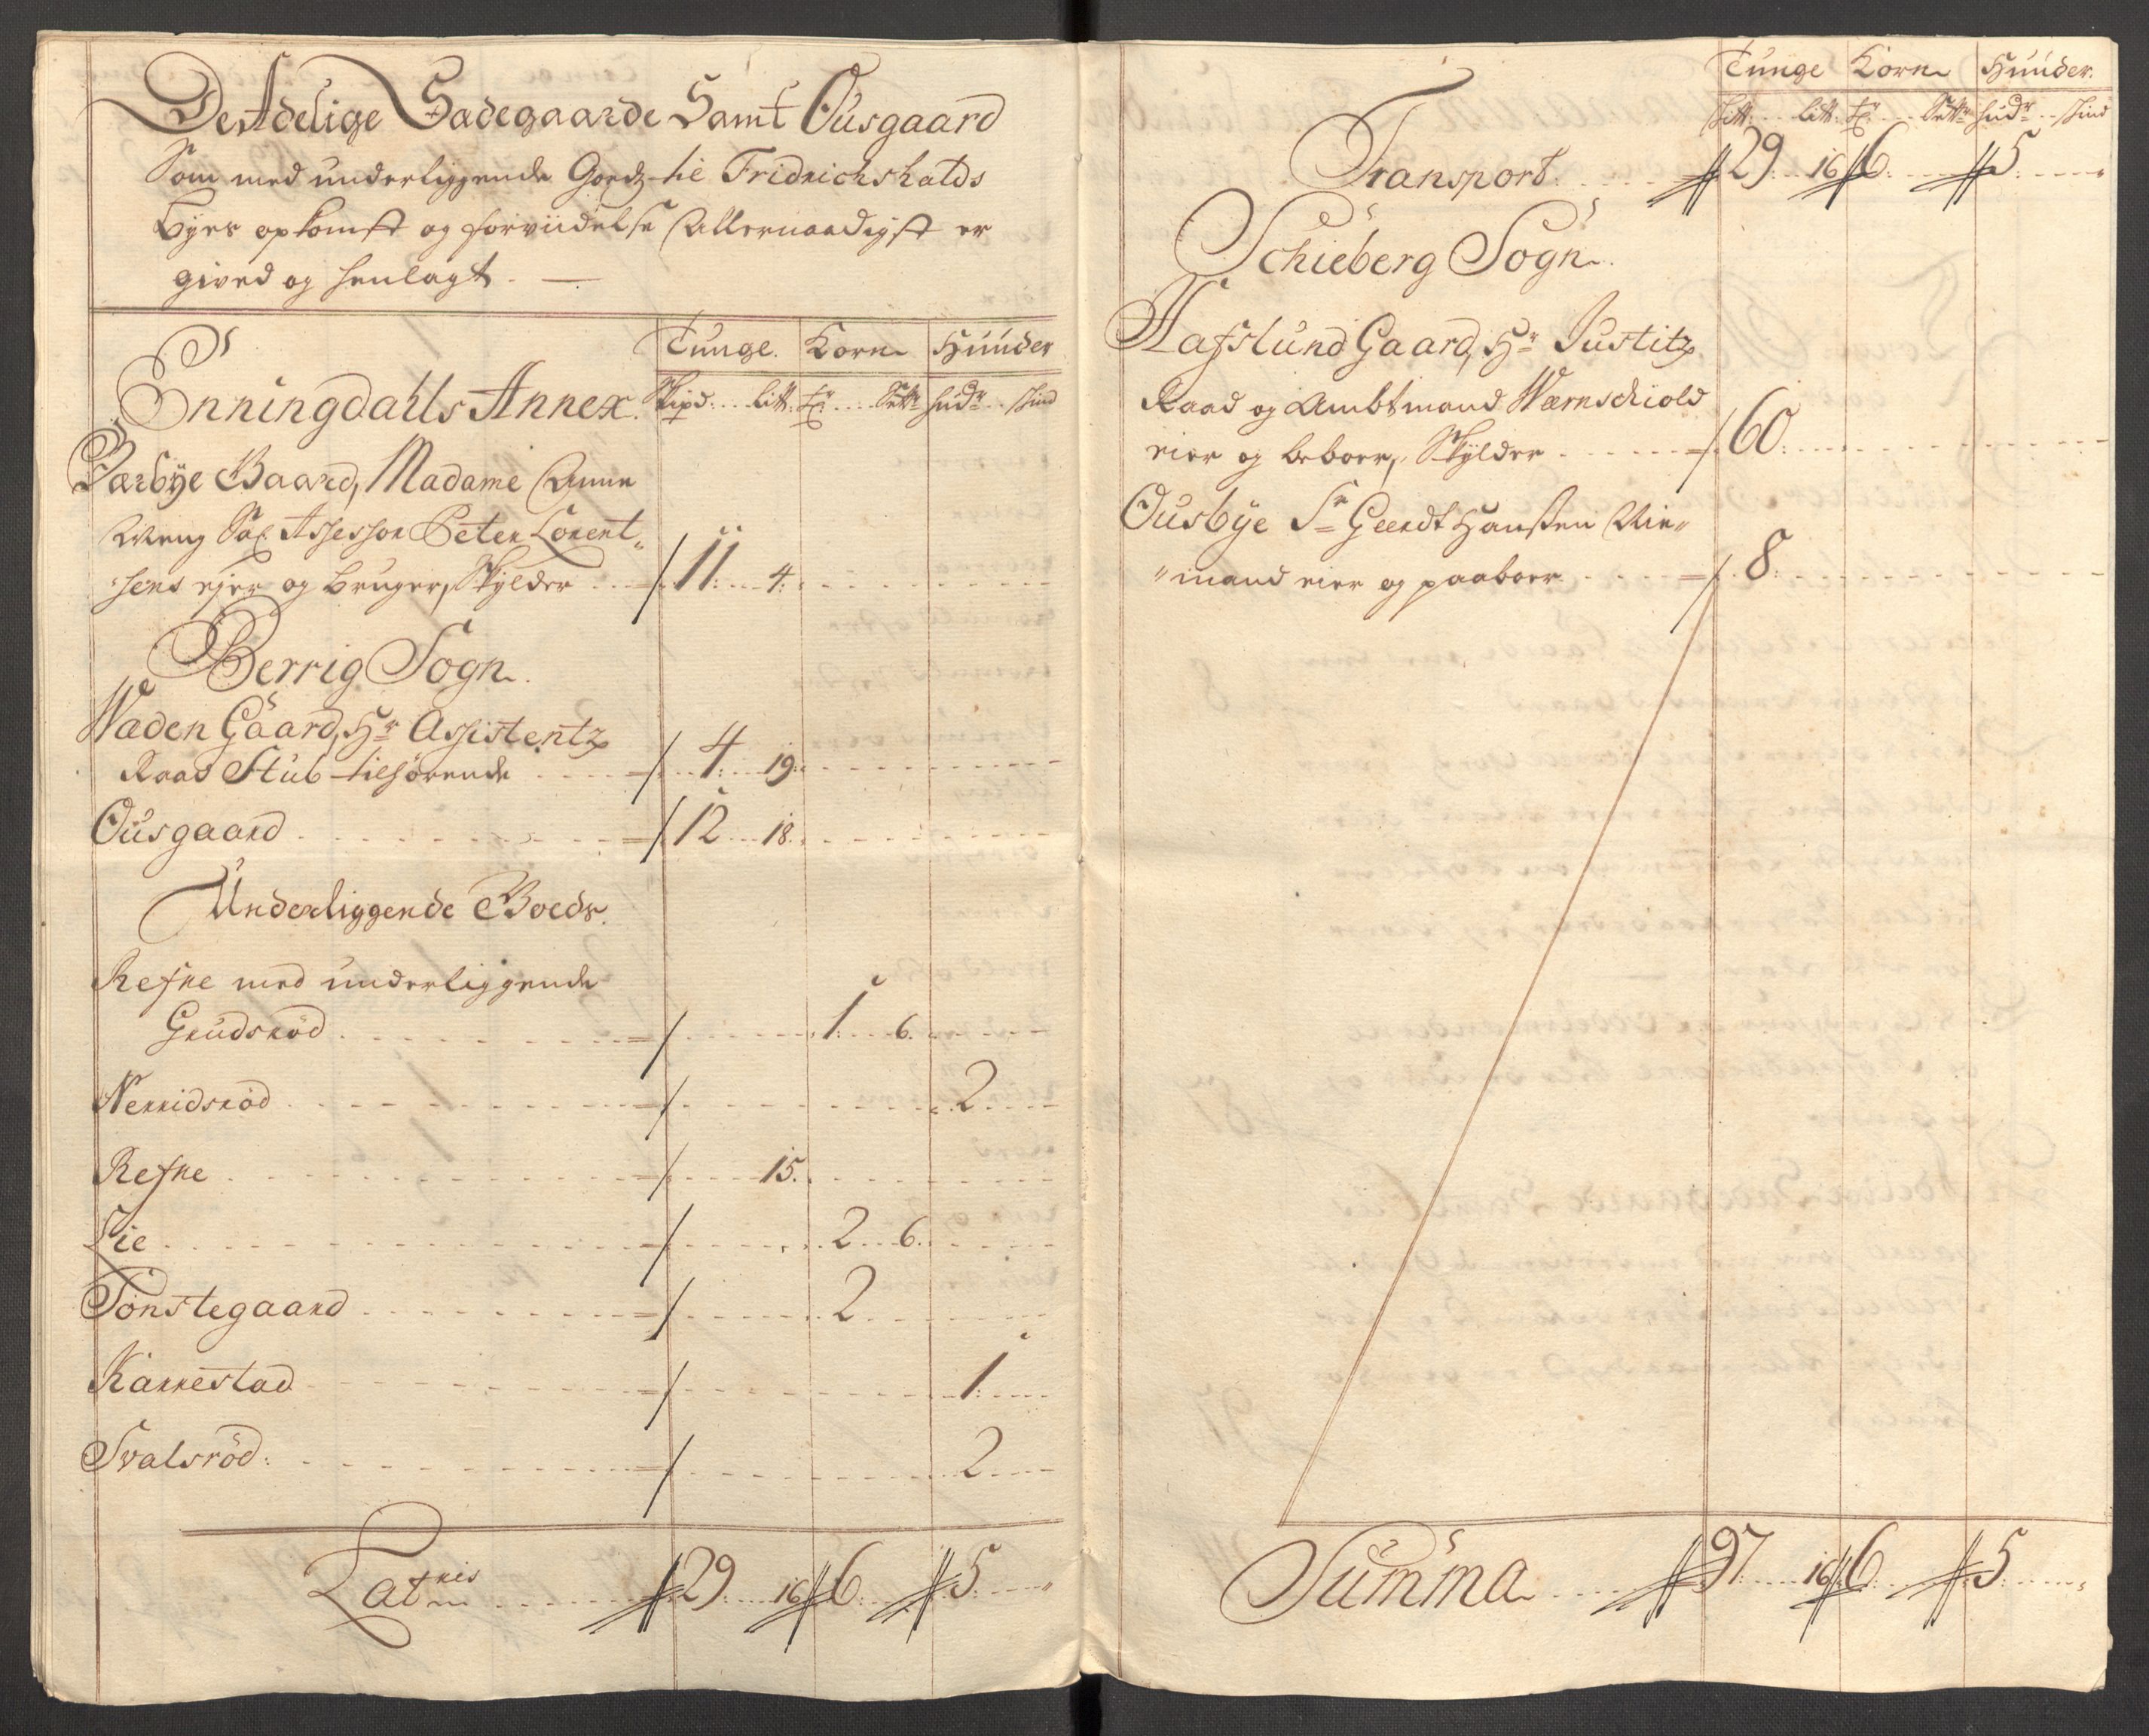 De Adelige Sadegaarde Samt Ousgaard
Som med underliggende Goedz til Fridrichshalds
Byes opkomst og forviidelse Allernaadigst er
gived og henlagt. —
Tunge. Korn Huuder
Enningdahls Annex. Skipd. . . litt. Tr . . . Settr hudr . . skind
Bærbÿe Gaard, Madame Anna
Wenz Sal. Assessor Peter Lorent-
-sens ejer og bruger, Skÿlder . . . 11: . . . 4:
Berrig Sogn.
Waden Gaard, Hr Assistentz
Raad Stub tilhörende . . . 4: . . . 19:
Ousgaard . . . 12 . . . 18.
Underliggende Goeds.
Refne med underliggende
Grudsröd . . . 1: . . . 6.
Nerridsröd . . . 2
Refne . . . 15.
Lie . . . 2 . . . 6.
Tonstegaard . . . 2
Karrestad . . . 1:
Svalsröd: . . . 2
Lateris . . . 29: . . . 16 6: . . . 5:
Tunge Korn Huuder.
Skll: . . litt. Tr . . . Settr hudr . . skind
Transport: . . . 29: . . . 16 6: . . . 5:
Schieberg Sogn.
Hafslund Gaard, Hr Justitz
Raad og Ambtmand Wærnschiold
eier og beboer, Skÿlder . . . 60:
Ousbÿe Sr Geerdt Hanssen
mand eier og paaboer . . . 8:
Summa . . . 97: . . . 16 6: . . . 5: